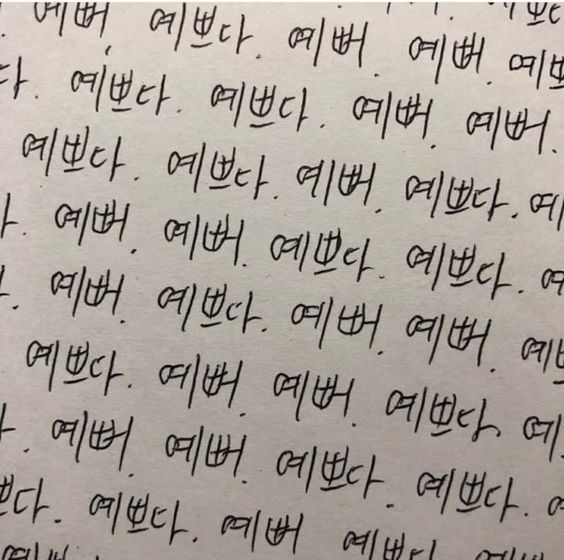 예뻐. 예쁘다. 예뻐. 예뻐.
다. 예쁘다. 예쁘다. 예뻐. 예뻐.
예쁘다. 예쁘다. 예뻐. 예쁘다.
예뻐. 예뻐. 예쁘다. 예쁘다.
예뻐. 예쁘다. 예뻐. 예뻐.
예쁘다. 예뻐. 예뻐. 예쁘다.
예뻐. 예뻐. 예쁘다. 예쁘다.
쁘다. 예쁘다. 예뻐 예쁘다.